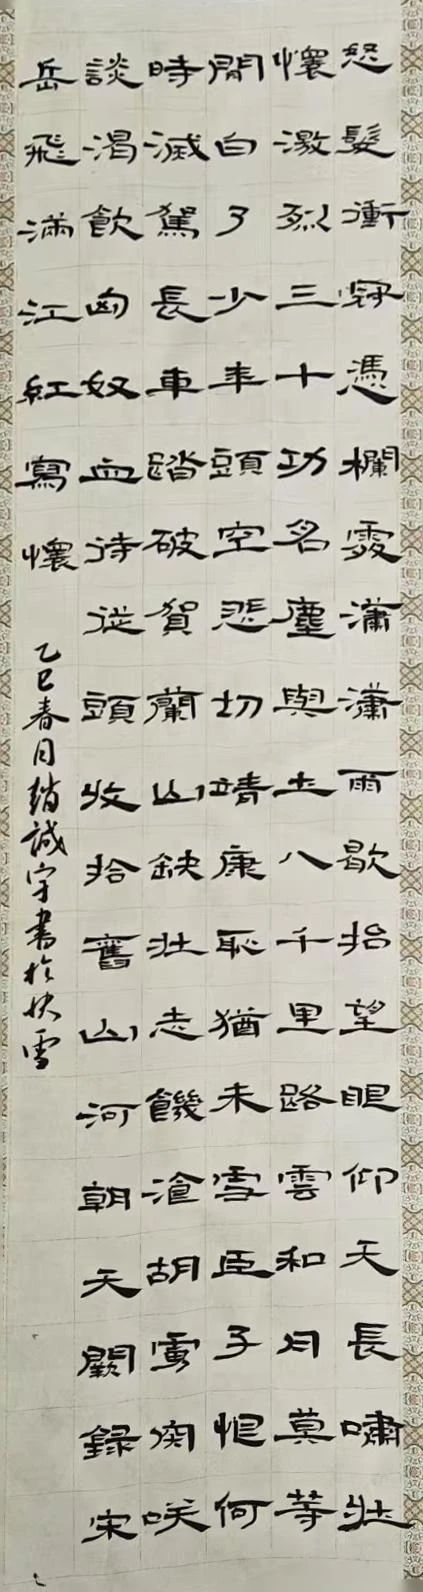 怒髮衝冠憑欄處瀟瀟雨歇抬望眼仰天長嘯壯
懷激烈三十功名塵與土八千里路雲和月莫等
閒白了少年頭空悲切靖康恥猶未雪臣子恨何
時滅駕長車踏破賀蘭山缺壯志饑湌胡虜肉咲
談渴飲匈奴血待從頭收拾舊山河朝天闕錄宋
岳飛滿江紅寫懷
乙巳春月趙誠宇書於快雪